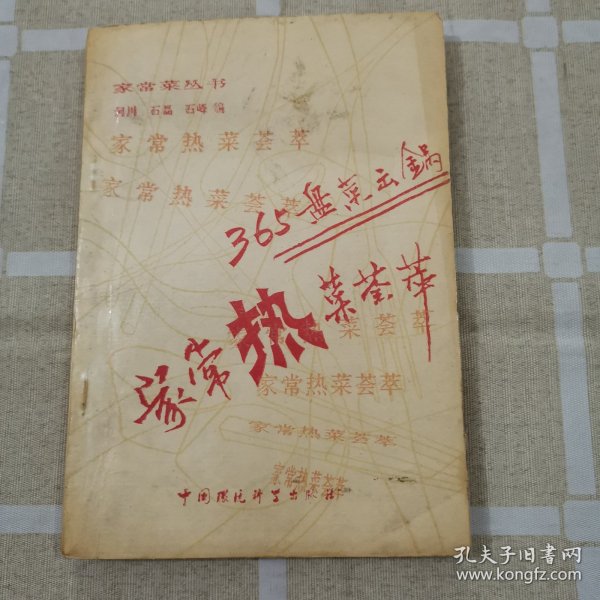 家常菜丛书
石磊 石峰 编
家常热菜荟萃
家常热菜荟萃
365盘菜云锅
家常热菜荟萃
菜荟萃
家常热菜荟萃
家常热菜荟萃
家常热菜荟萃
中国环境科学出版社
孔夫子旧书网
www.kongfz.com